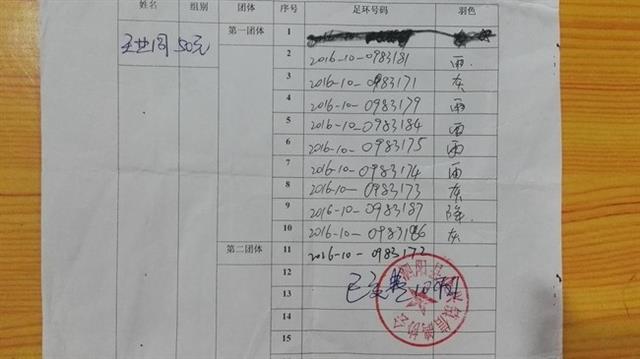 姓名 组别 团体 序号 足环号码 羽色
50元 第一团体 1
2 2016-10-0983181 雨
3 2016-10-0983171 灰
4 2016-10-0983179 雨
5 2016-10-0983184 雨
6 2016-10-0983175 雨
7 2016-10-0983174 雨
8 2016-10-0983173 灰
9 2016-10-0983187
10 2016-10-0983186 灰
第二团体 11 2016-10-0983172
12
13 已交费
14
15